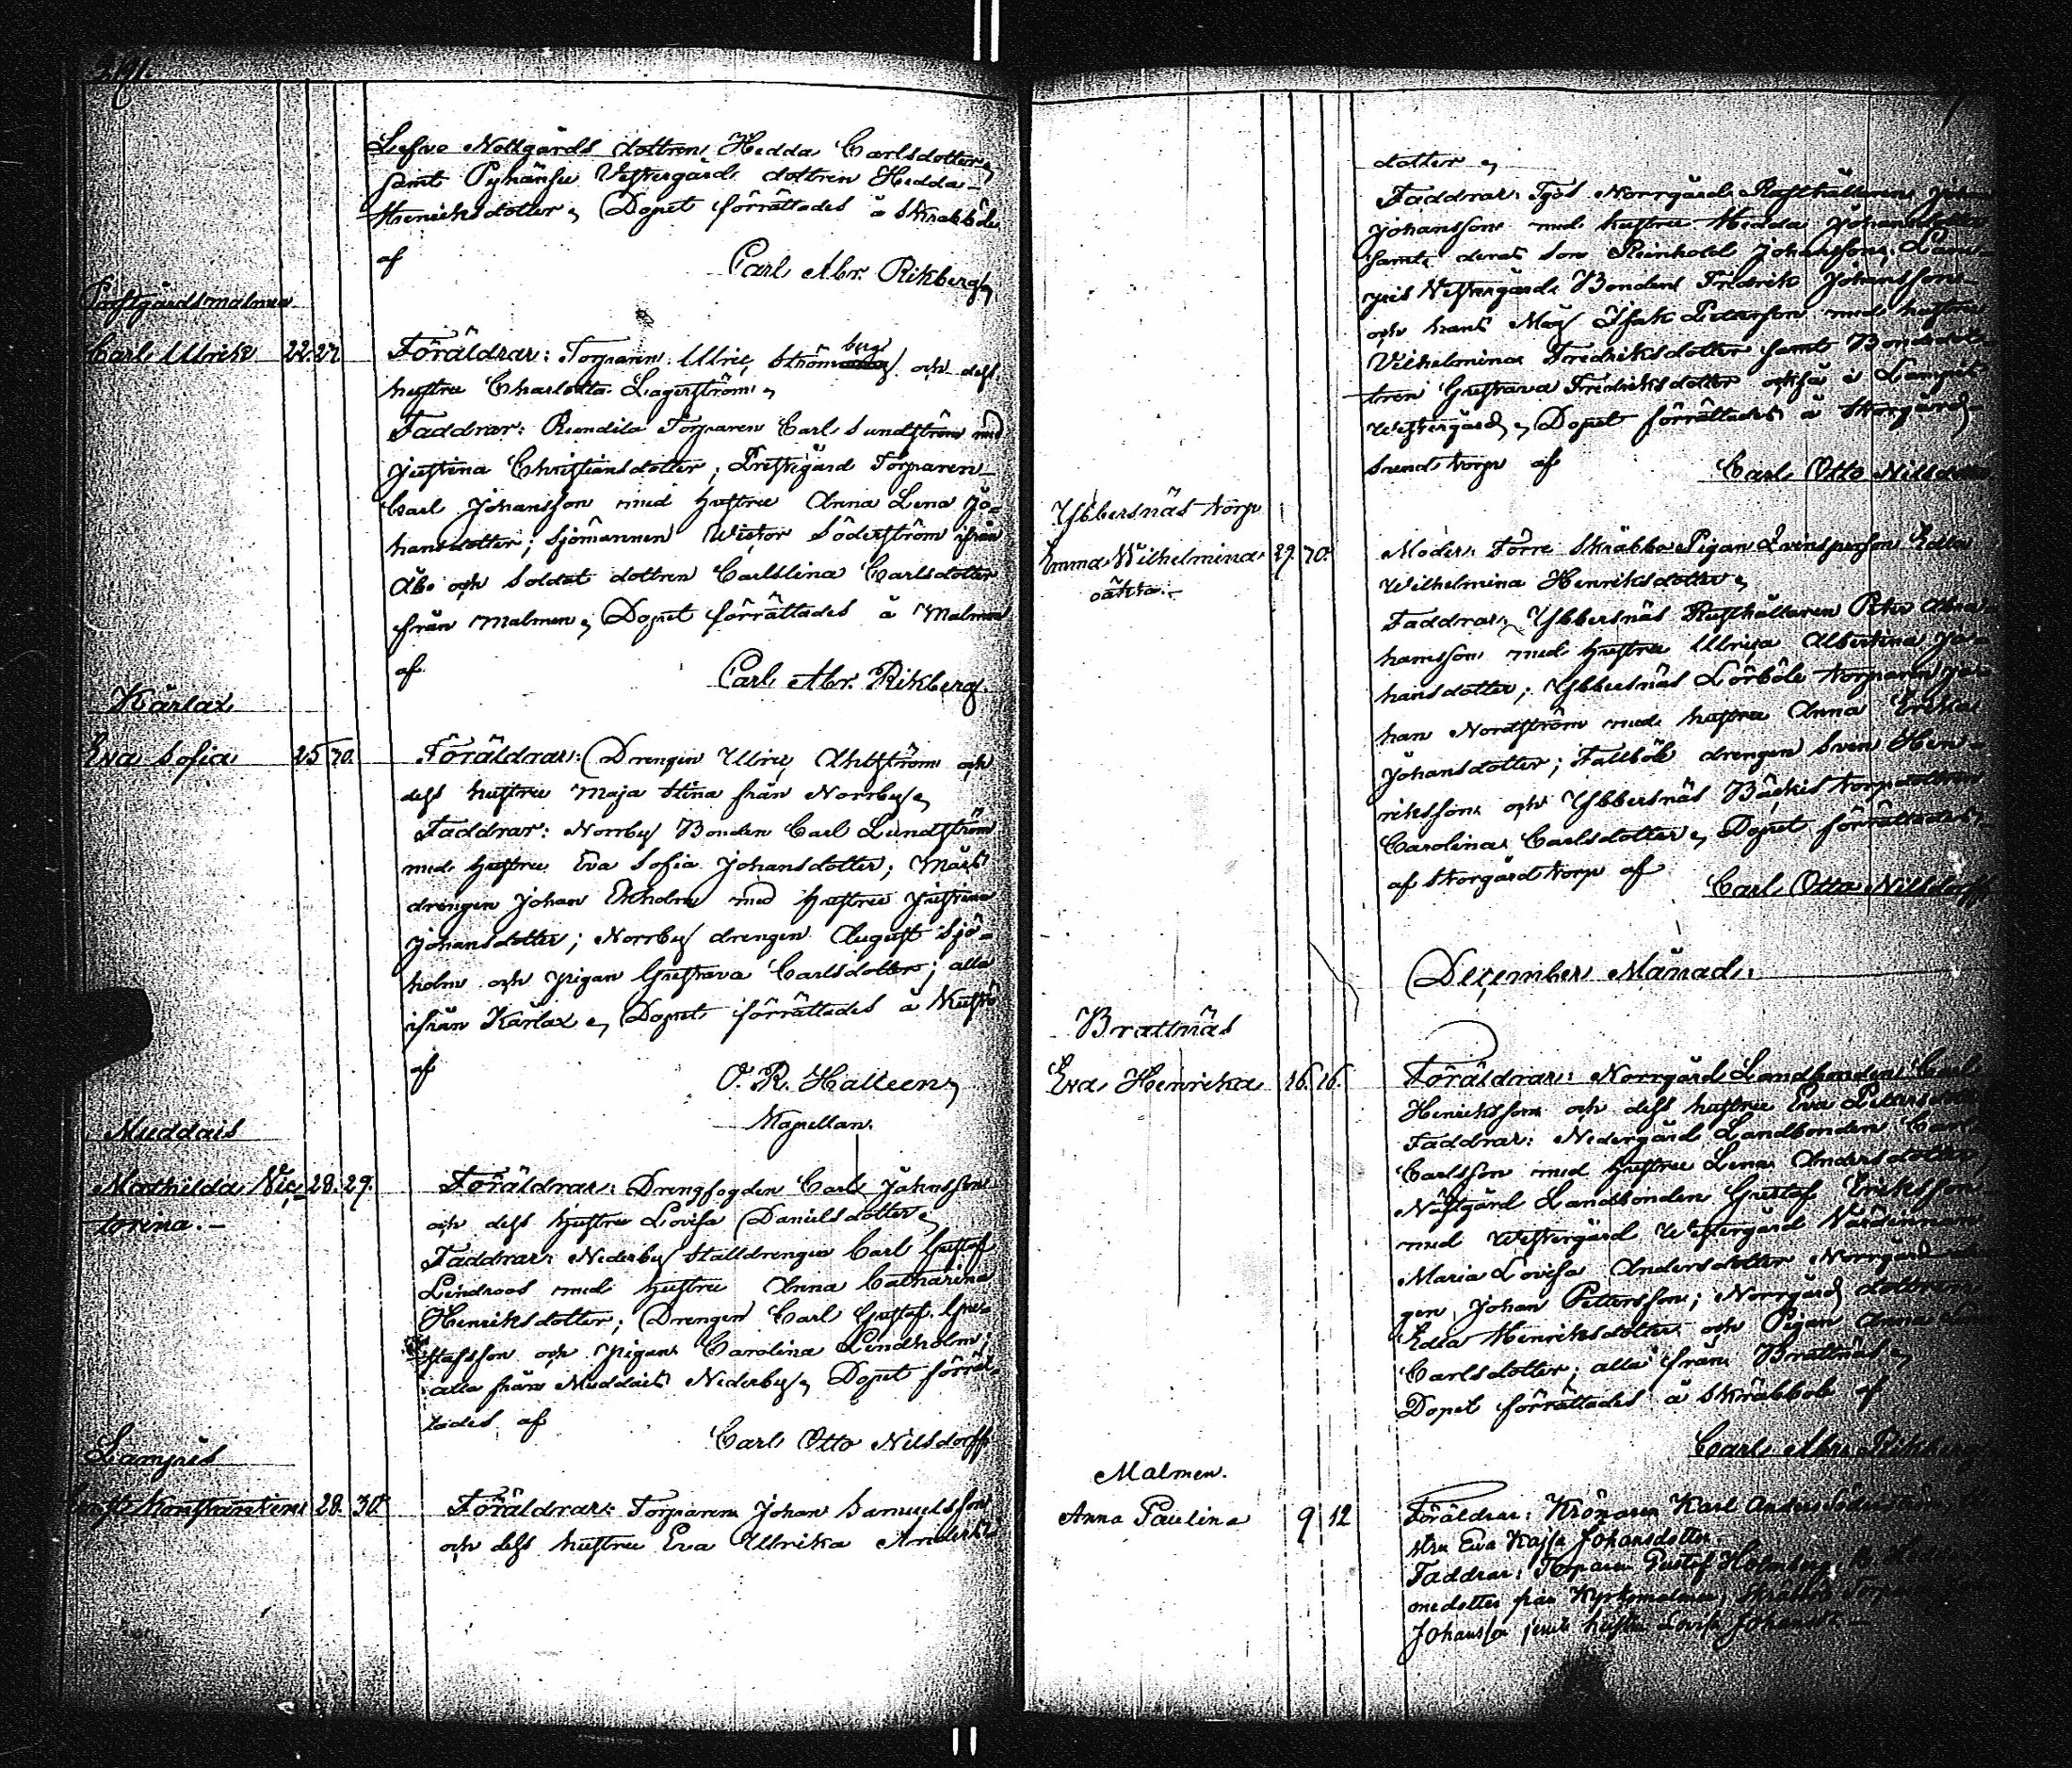 Lefvo Nottgårds dottren Hedda Carlsdotter
samt Pyhänsu Vestergårds dottren Hedda
Henriksdotter, Dopet förrättades å Skrabböle
af Carl Abr. Rikberg
Prestgårdsmalmen
Carl Ulrik 22. 27 Föräldrar: Torparen Ulric Strömberg och dess
hustru Charlotta Lagerström
Faddrar: Rundila Torparen Carl Sundström med
Justina Christiansdotter; Prestgård Torparen
Carl Johansson med hustru Anna Lena Jo-
hansdotter; Sjömannen Wictor Söderström ifrån
Åbo och Soldat dottren Carolina Carlsdotter
från Malmen, Dopet förrättades å Malmen
af Carl Abr. Rikberg.
Kärlax
Eva Sofia 25 30. Föräldrar: Drengen Ulric Ahlström och
dess hustru Maja Stina från Norrby
Faddrar: Norrby Bonden Carl Lundström
med hustru Eva Sofia Johansdotter; Mårs
drengen Johan Ekholm med hustru Justina
Johansdotter; Norrby drengen August Sjö-
holm och pigan Gustava Carlsdotter; alla
ifrån Kärlax, Dopet förrättades å Kustö
af O. R. Halleen
Kapellan.
Muddais
Mathilda Vic- 28. 29. Föräldrar: Drengfogden Carl Johnsson
torina. och dess hustru Lovisa Danielsdotter
Faddrar: Nederby Stalldrengen Carl Gustaf
Lindroos med hustru Anna Catharina
Henriksdotter; Drengen Carl Gustaf Gus-
stafsson och pigan Carolina Lindholm;
alla från Muddais Nederby, Dopet förrät-
tades af Carl Otto Nilsdorff
Lampis
Konstantin 28. 30. Föräldrar: Torparen Johan Samuelsson
och dess hustru Eva Ulrika Anders
dotter
Faddrar: Norrgårds Rusthållaren
Johansson med hustru Hedda Johansdotter
samt deras son Reinhold Johansson; Lam-
pis Vestergårds Bonden Fredrik Johansson
och hans Måg Isak Petersson med hustru
Vilhelmina Fredriksdotter samt Bondedot-
tren Gustava Fredriksdotter också i Lampis
Westergård, Dopet förrättades å Storgård
sunds torp af Carl Otto Nilsdorff
Ybbersnäs torp
Emma Wilhelmina 29. 30. Moder: Förre Skräbbo Pigan Qvinsperson Edla
oäkta. Wilhelmina Henriksdotter
Faddrar: Ybbersnäs Rusthållaren Peter Abra-
hamsson med hustru Ulrica Albertina Jo-
hansdotter; Ybbersnäs Lörböle torparen Jo-
han Nordström med hustru Anna Erika
Johansdotter; Fallböle drengen Sven Hen-
riksson och Ybbersnäs Bäckis torpdottren
Carolina Carlsdotter, Dopet förrättades
af Storgård torp af Carl Otto Nilsdorff
December Månad.
Brattnäs
Eva Henrika 16. 16. Föräldrar: Norrgård Landbonden Carl
Henriksson och dess hustru Eva Petersdotter
Faddrar: Nedergård Landbonden Carl
Carlsson med hustru Lena Andersdotter
Nåstgård Landbonden Gustaf Eriksson
med Westergård Westergård Värdinnan
Maria Lovisa Andersdotter Norrgård
gen Johan Pettersson; Norrgård dottren
Edla Henriksdotter och Pigan Anna
Carlsdotter; alla från Brattnäs
Dopet förrättades å Skräbbole af
Carl Abr. Rikberg
Malmen.
Anna Paulina 9 12 Föräldrar: Krönaren Karl Anders Söderström
stru Eva Kajsa Johansdotter
Faddrar: Torparen Gustaf Holmberg
medotter från Kyrkomalmen
Johansson jemte hustru Lovisa Johansdr.